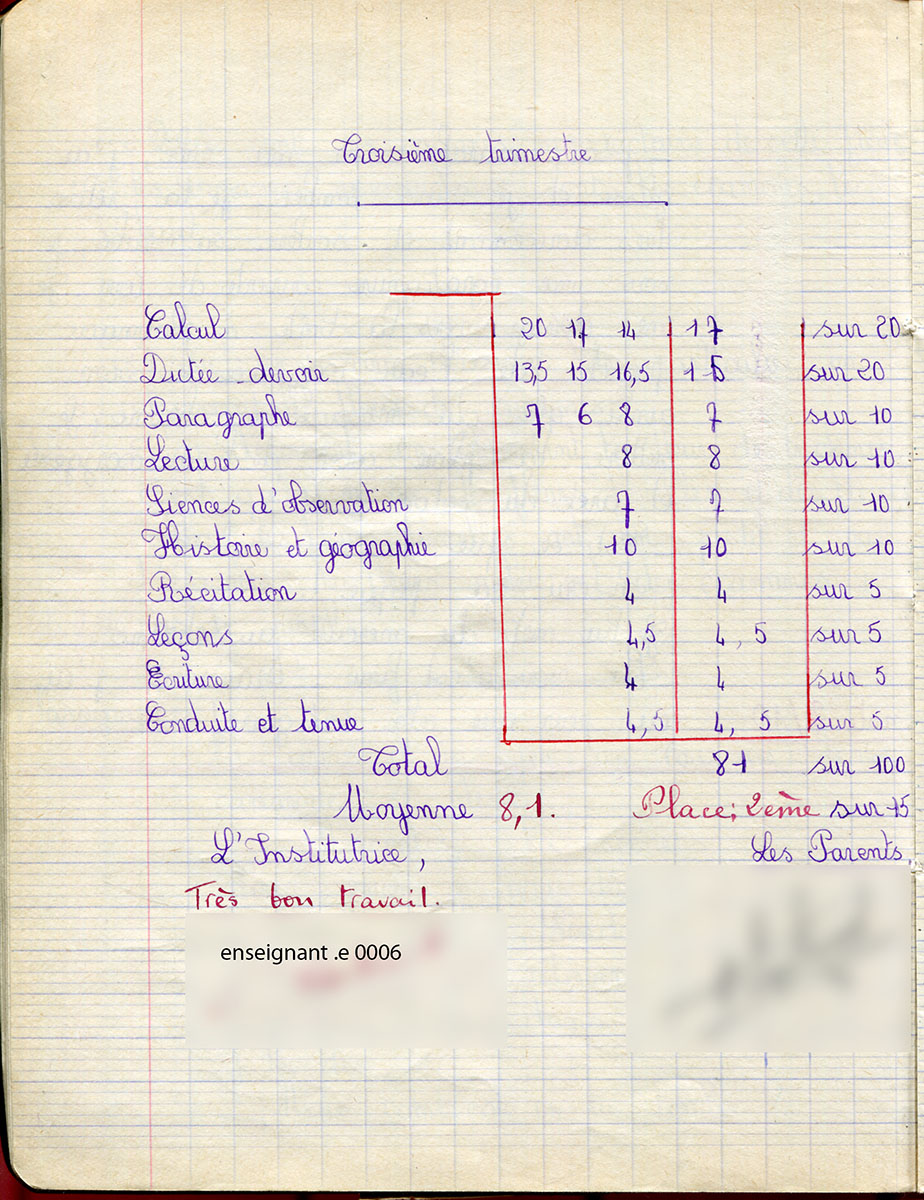 Troisième trimestre
Calcul 20 17 14 17 sur 20
Dictée - devoir 13,5 15 16,5 15 sur 20
Paragraphe 7 6 8 7 sur 10
Lecture 8 8 sur 10
Siences d'observation 7 7 sur 10
Histoire et géographie 10 10 sur 10
Récitation 4 4 sur 5
Leçons 4,5 4,5 sur 5
Ecriture 4 4 sur 5
Conduite et tenue 4,5 4,5 sur 5
Total 81 sur 100
Moyenne 8,1. Place: 2ème sur 15
L'Institutrice, Les Parents,
Très bon travail.
enseignant .e 0006